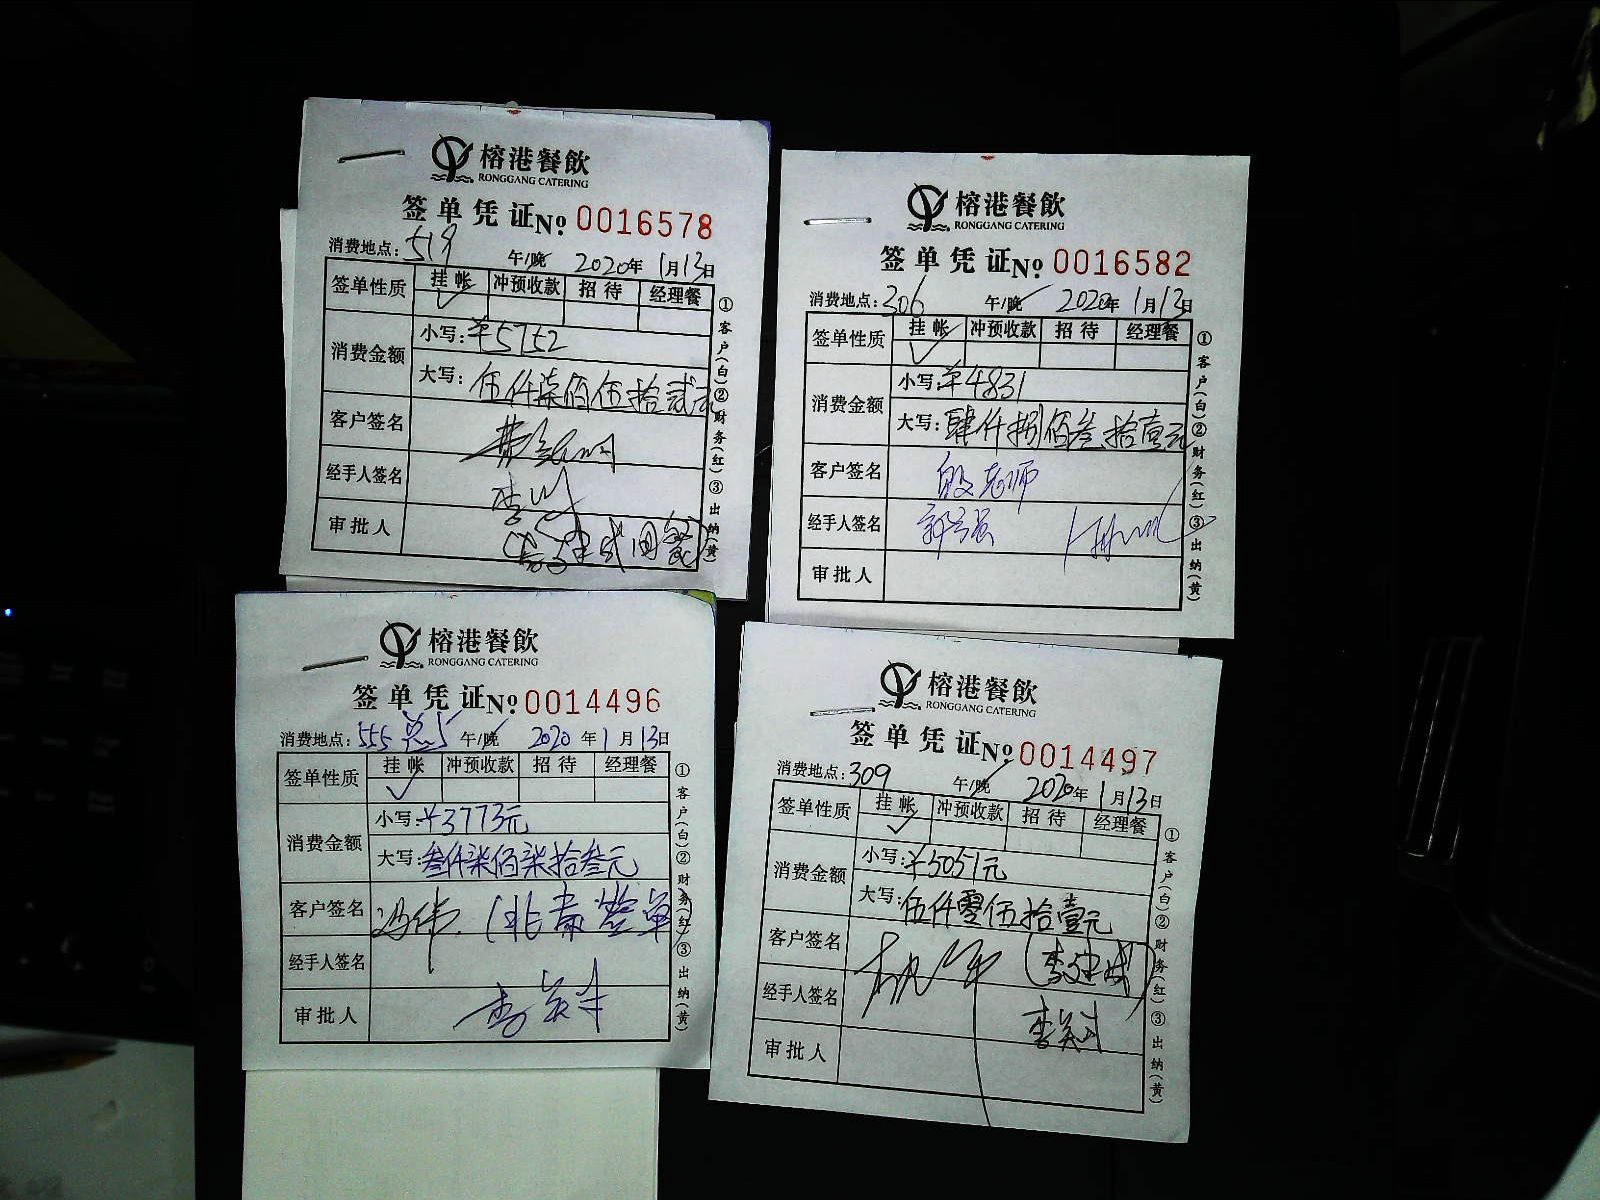 榕港餐飲
RONGGANG CATERING
签单凭证№ 0016578
消费地点：519 午/晚 2020年1月13日
签单性质 挂帐 冲预收款 招待 经理餐
消费金额 小写：¥5752
大写：伍仟柒佰伍拾贰元
客户签名
经手人签名
审批人
①客户(白)②财务(红)③出纳(黄)
榕港餐飲
RONGGANG CATERING
签单凭证№ 0016582
消费地点：306 午/晚 2020年1月13日
签单性质 挂帐 冲预收款 招待 经理餐
消费金额 小写：¥4831
大写：肆仟捌佰叁拾壹元
客户签名 殷老师
经手人签名 郭强
审批人
①客户(白)②财务(红)③出纳(黄)
榕港餐飲
RONGGANG CATERING
签单凭证№ 0014496
消费地点：555 午/晚 2020年1月13日
签单性质 挂帐 冲预收款 招待 经理餐
消费金额 小写：¥3773元
大写：叁仟柒佰柒拾叁元
客户签名 冯伟 签单)
经手人签名
审批人
①客户(白)②财务(红)③出纳(黄)
榕港餐飲
RONGGANG CATERING
签单凭证№ 0014497
消费地点：309 午/晚 2020年1月13日
签单性质 挂帐 冲预收款 招待 经理餐
消费金额 小写：¥5051元
大写：伍仟零伍拾壹元
客户签名 (李建成)
经手人签名
审批人
①客户(白)②财务(红)③出纳(黄)